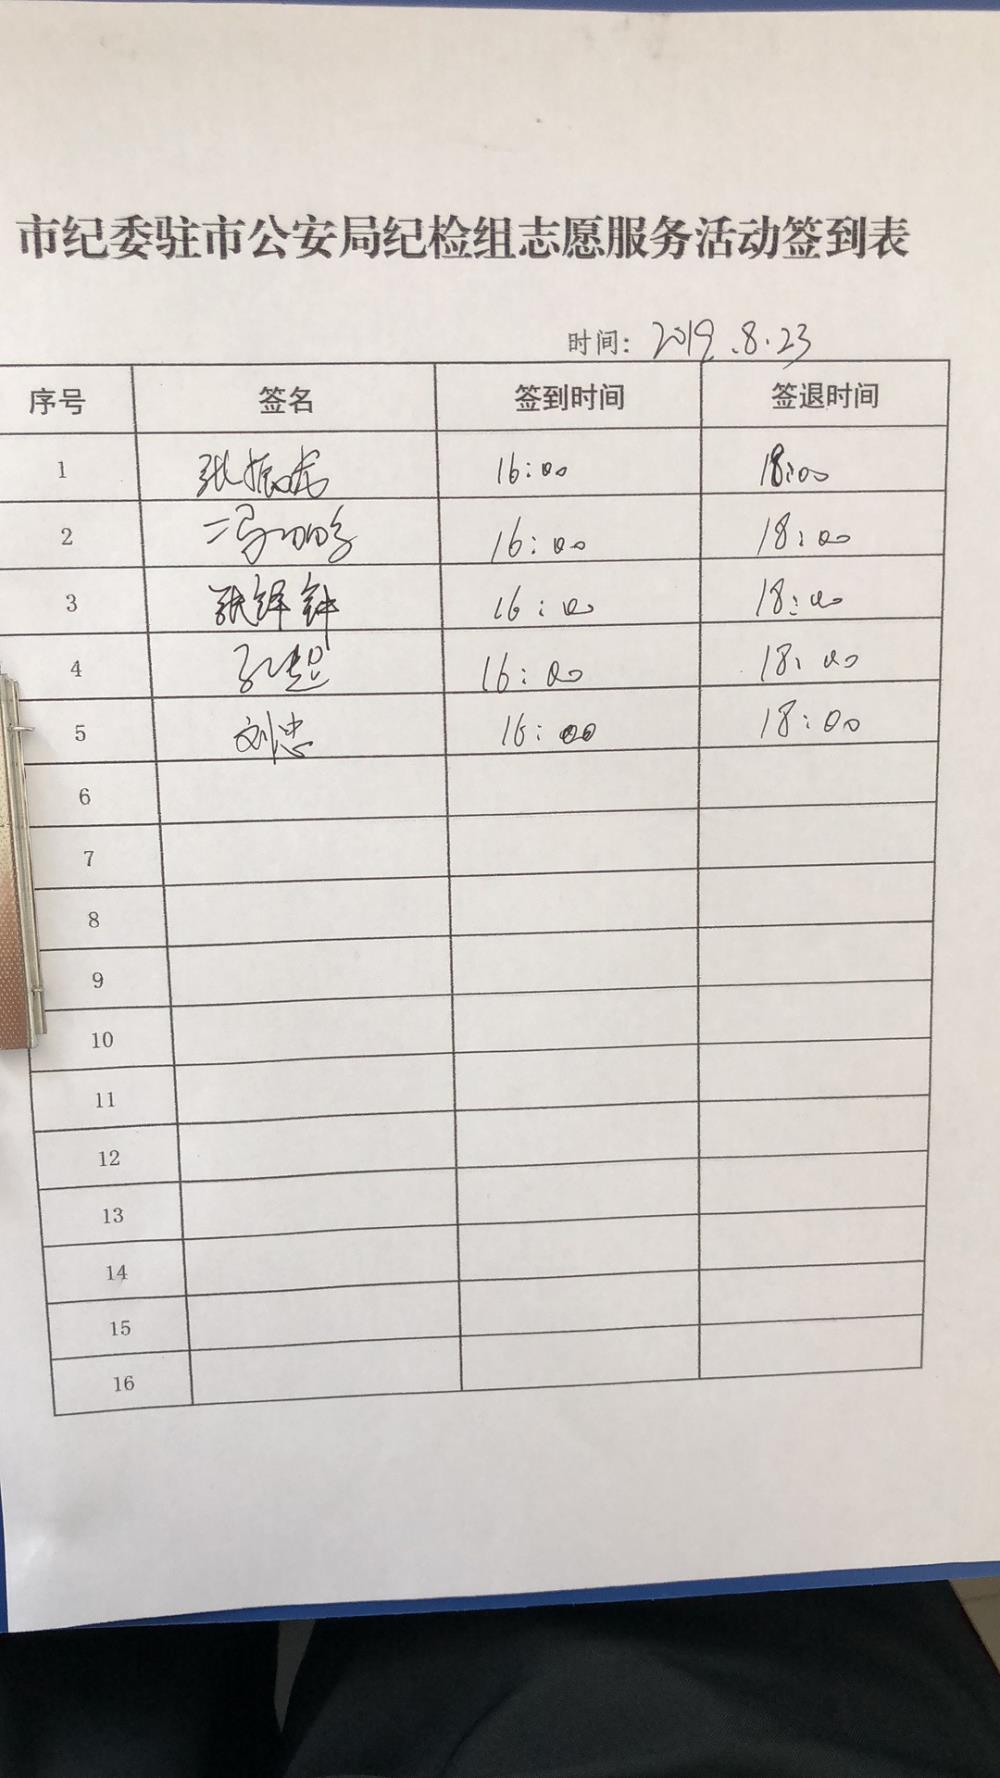 市纪委驻市公安局纪检组志愿服务活动签到表
时间: 2019.8.23
序号 签名 签到时间 签退时间
1 张振龙 16:00 18:00
2 16:00 18:00
3 张铎钟 16:00 18:00
4 孔超 16:00 18:00
5 刘忠 16:00 18:00
6
7
8
9
10
11
12
13
14
15
16